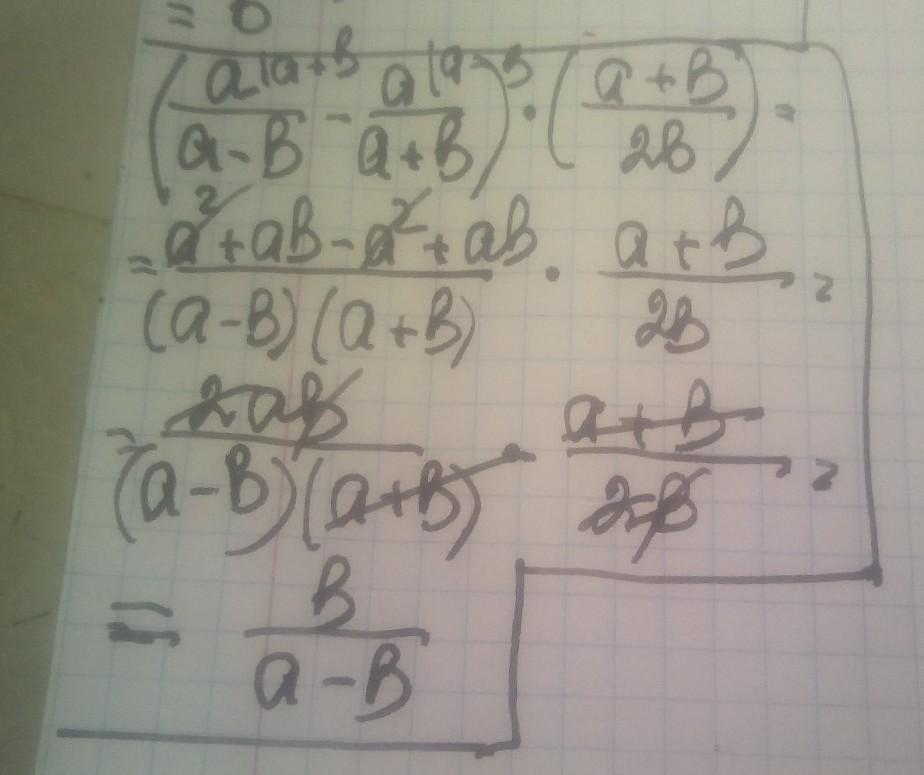 = 0
(a|a+B / a-B - a|a-B / a+B) · (a+B / 2B) =
= a²+aB-a²+aB / (a-B)(a+B) · a+B / 2B =
= 2aB / (a-B)(a+B) · a+B / 2B =
= B / a-B